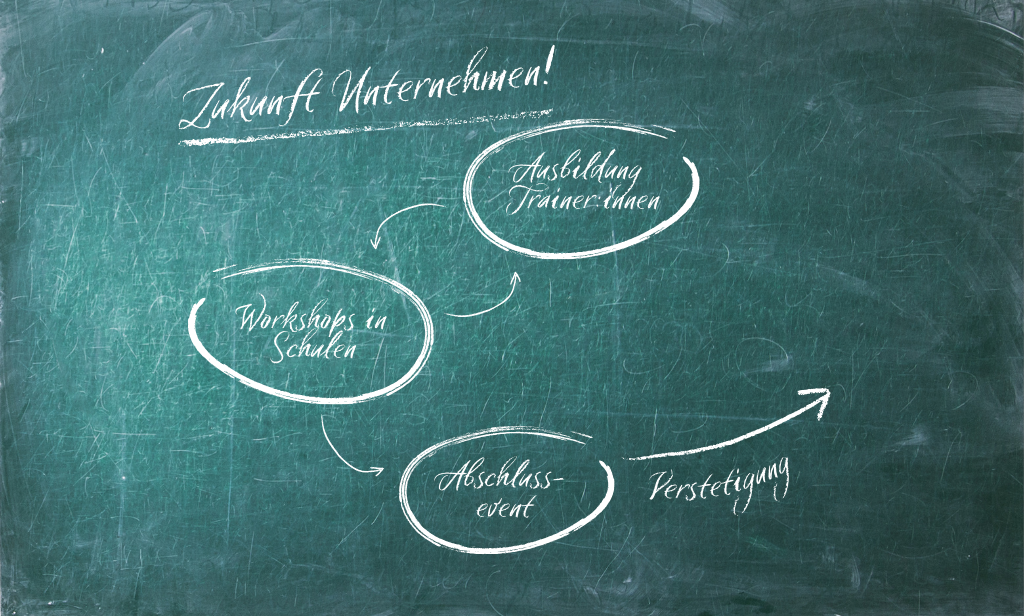 Zukunft Unternehmen!
Ausbildung
Trainer:innen
Workshops in
Schulen
Abschluss-
event
Verstetigung